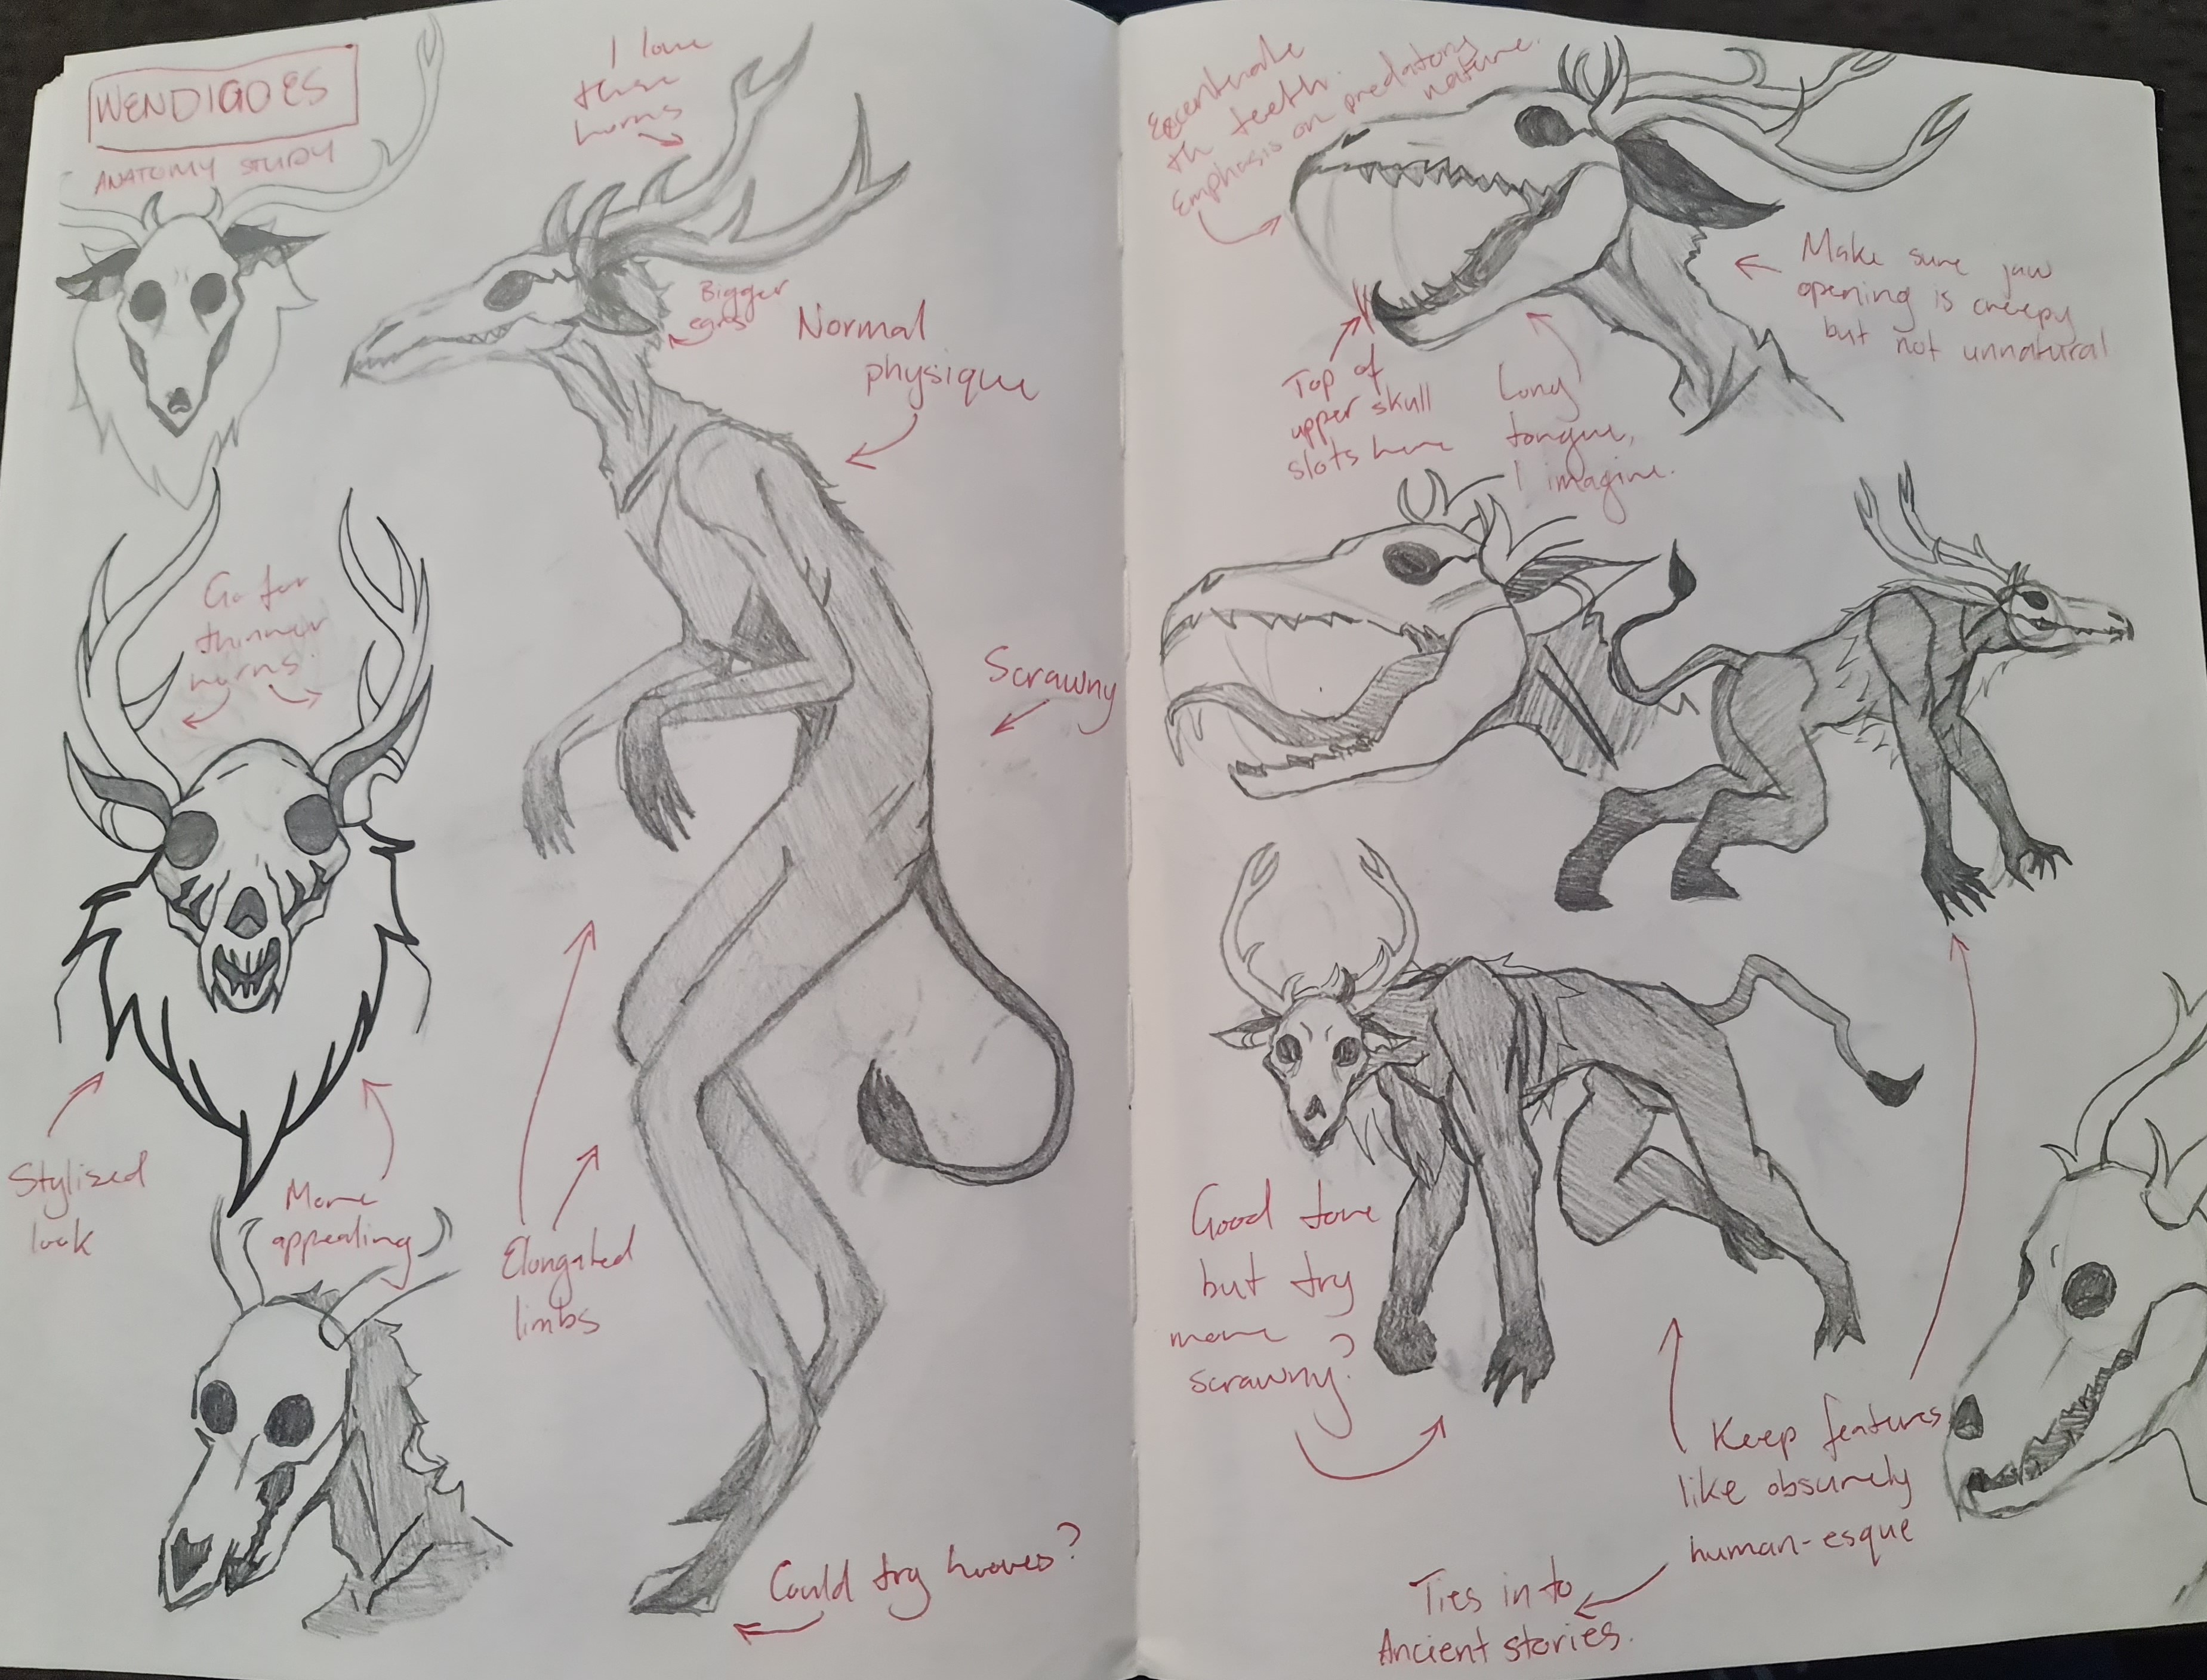 WENDIGOES
ANATOMY STUDY
I love
these
horns
Bigger
ears
Normal
physique
Go for
thinner
horns.
Scrawny
Stylized
look
More
appealing
Elongated
limbs
Could try hooves?
Eccentuate
th teeth.
Emphasis on predatory
nature.
Make sure jaw
opening is creepy
but not unnatural
Top of
upper skull
slots here
Long
tongue,
I imagine.
Good tone
but try
more
scrawny?
Keep features
like obscurely
human-esque
Ties in to
Ancient stories.